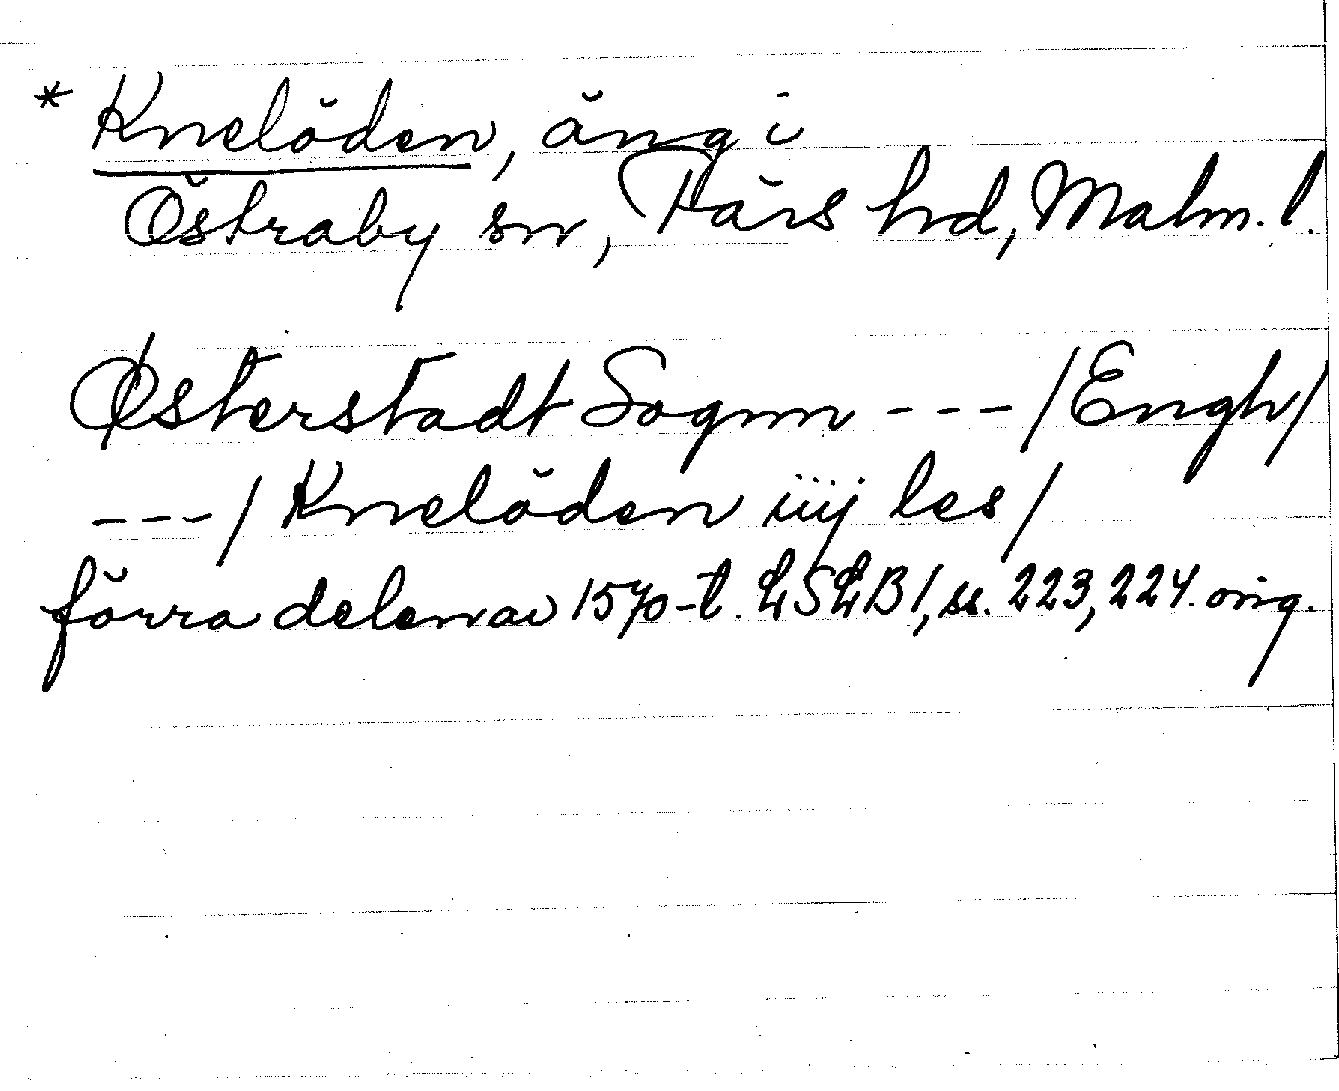 * Knelöden, äng i
Östraby sn, Färs hd, Malm. l.
Østerstadt Sognn - - - / Engh /
- - - / Knelöden iiij les /
förra delen av 1570-t. LSLB 1, ss. 223, 224. orig.